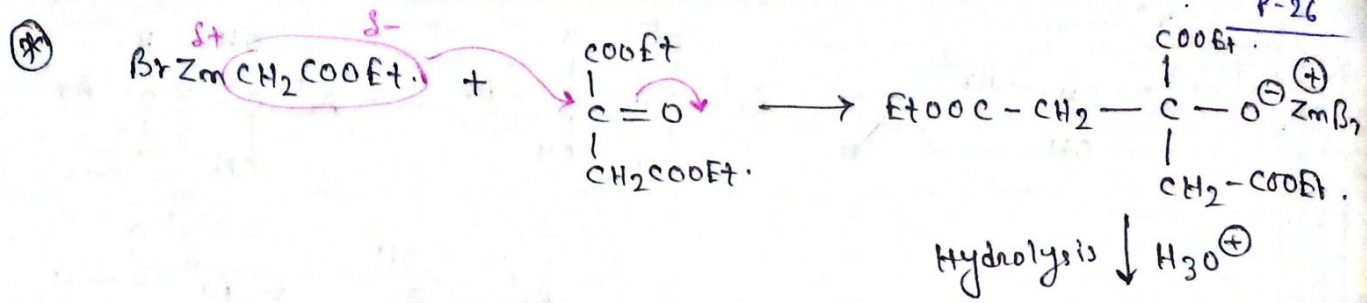 P-26
(*) δ+ δ-
BrZnCH₂COOEt. + COOEt
|
C=O
|
CH₂COOEt.
⟶ COOEt.
|
EtOOC-CH₂-C-O⊖ ⊕ZnBr
|
CH₂-COOEt.
Hydrolysis ↓ H₃O⊕